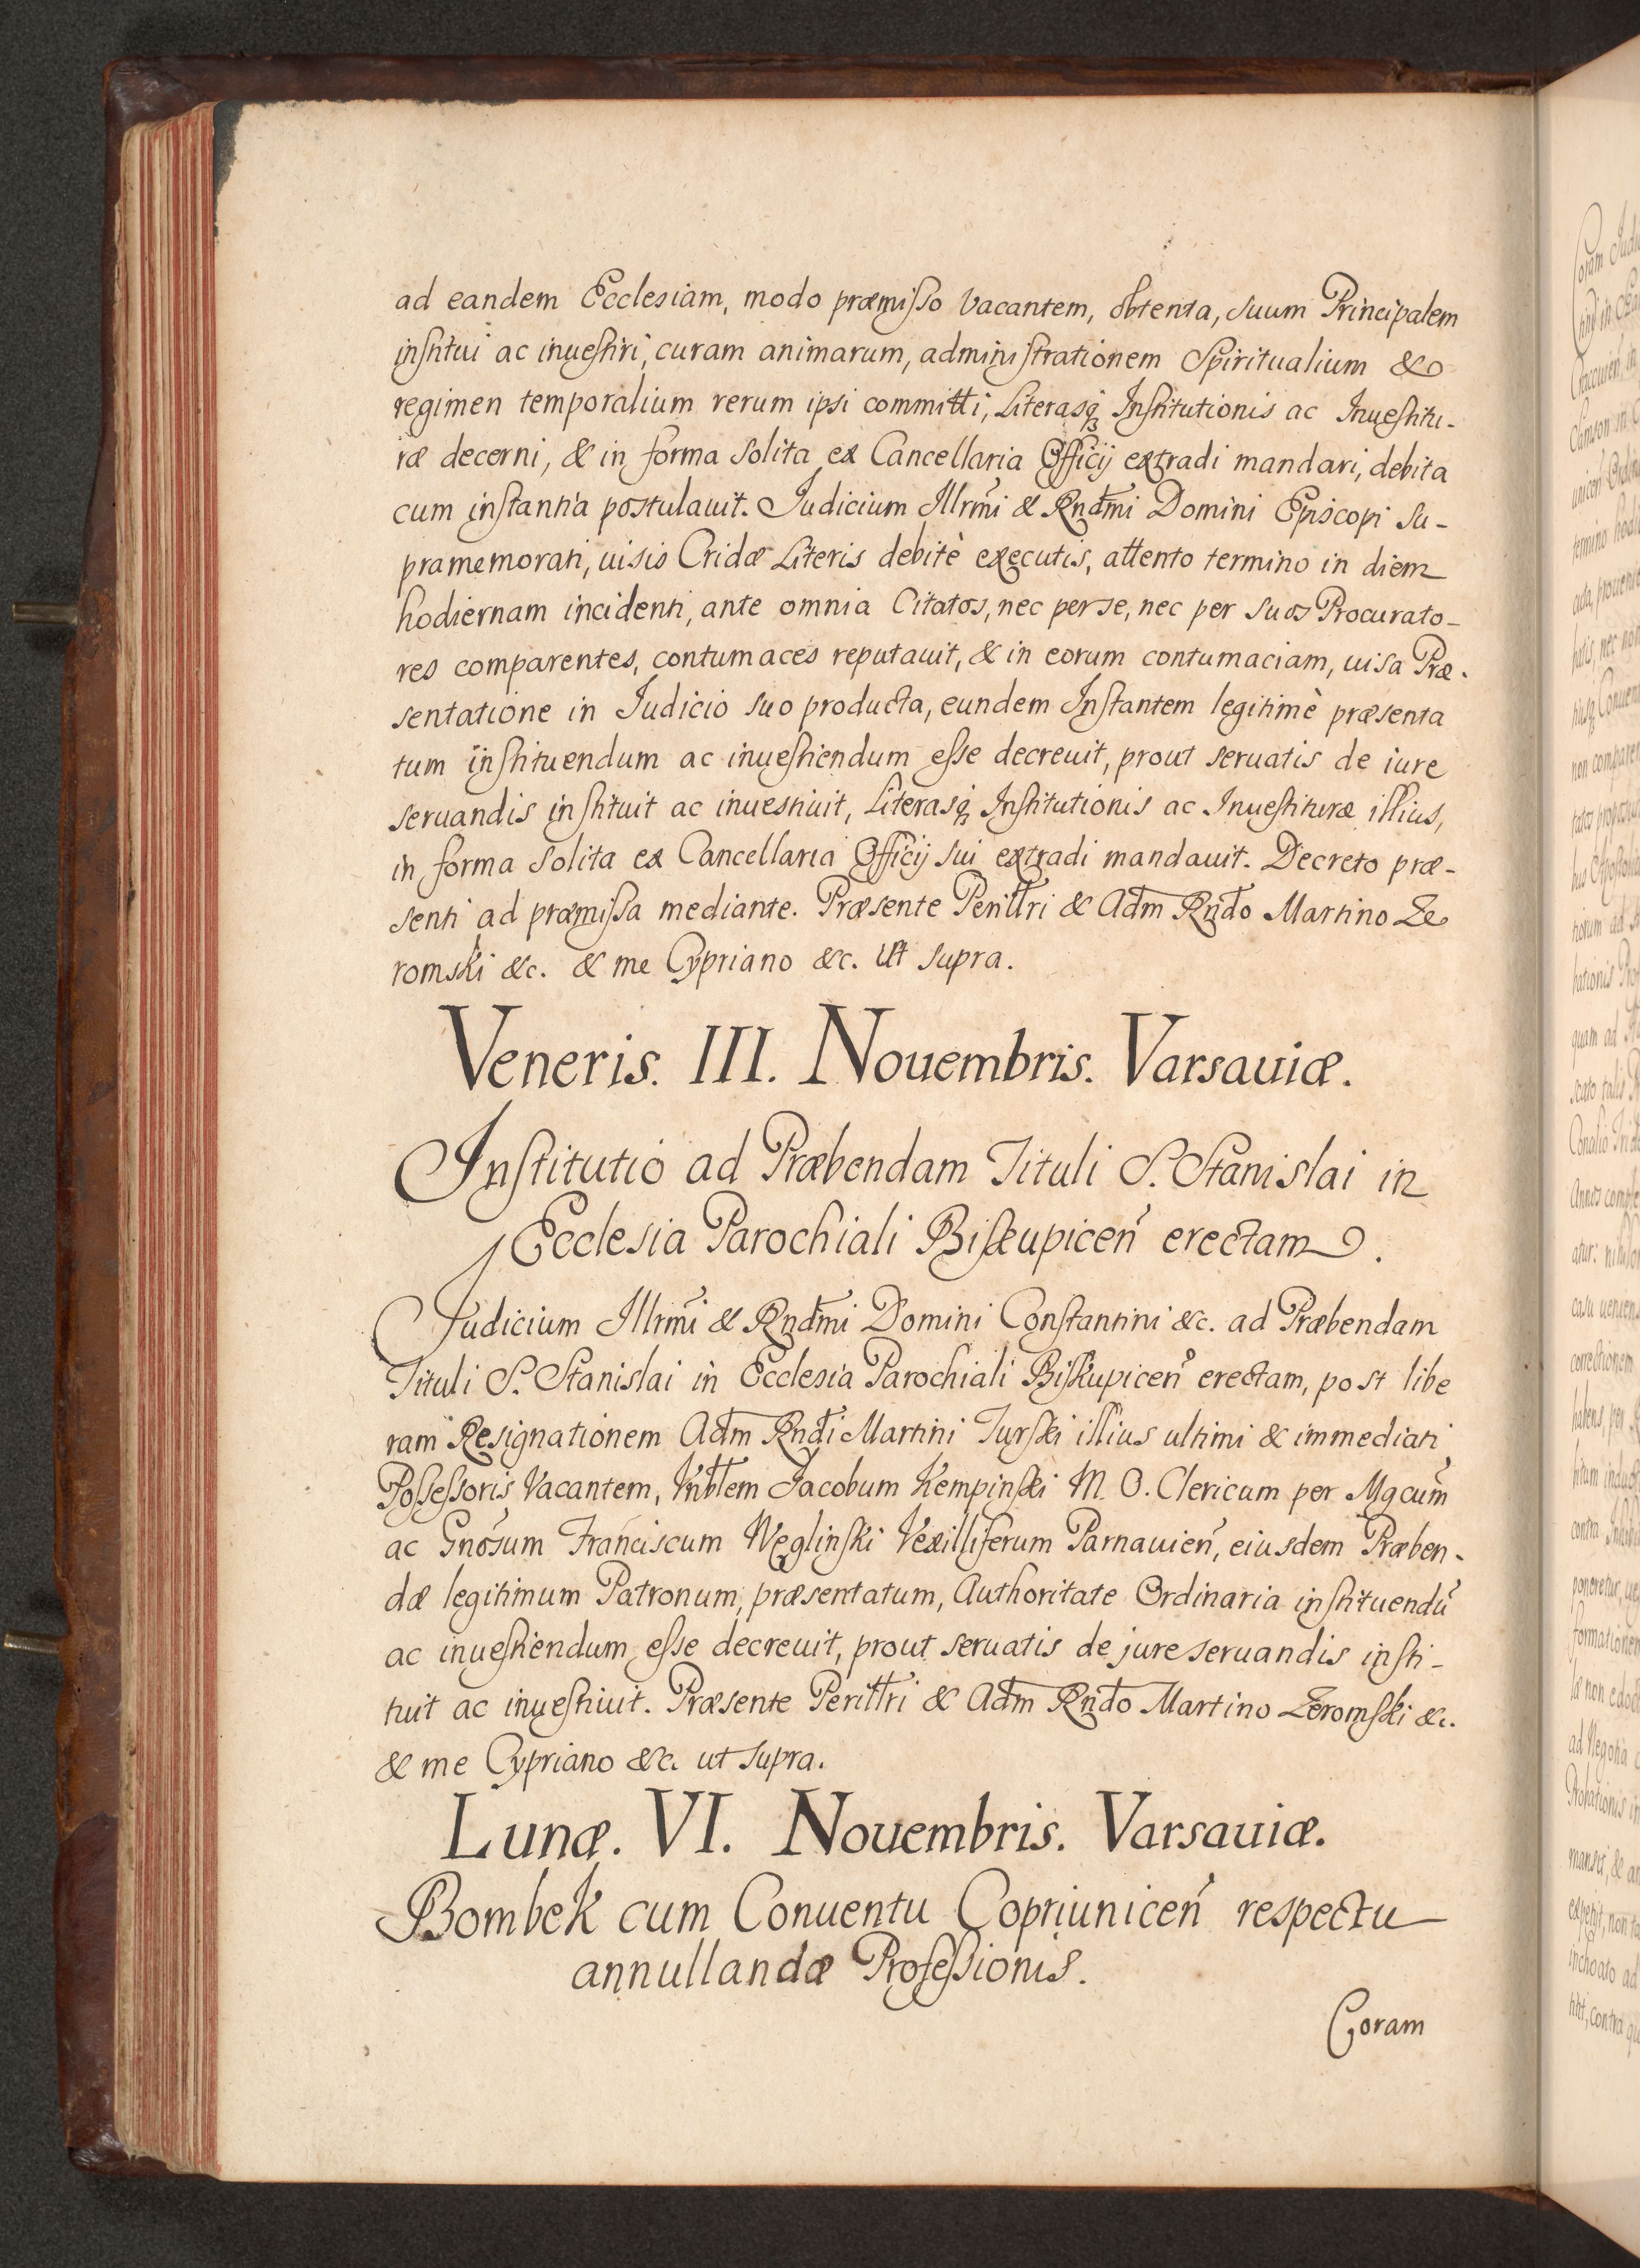 ad eandem Ecclesiam, modo præmisso vacantem, obtenta, suum Principalem
institui ac inuestiri, curam animarum, administrationem Spiritualium &
regimen temporalium rerum ipsi committi, Literasq́ Institutionis ac Inuestitu-
ræ decerni, & in forma solita ex Cancellaria Officij extradi mandari, debita
cum instantia postulauit. Judicium Illrm̃i & Rndm̃i Domini Episcopi su-
pramemorati, uisis Cridæ Literis debitè executis, attento termino in diem
hodiernam incidenti, ante omnia Citatos, nec per se, nec per suos Procurato-
res comparentes, contumaces reputauit, & in eorum contumaciam, uisa Præ-
sentatione in Judicio suo producta, eundem Instantem legitimè præsenta
tum instituendum ac inuestiendum esse decreuit, prout seruatis de iure
seruandis instituit ac inuestiuit, Literasq́ Institutionis ac Inuestituræ illius,
in forma solita ex Cancellaria Officij sui extradi mandauit. Decreto præ-
senti ad præmissa mediante. Præsente Perilltri & Adm̃ Rnd̃o Martino Ze
romski &c. & me Cypriano &c. ut supra.
Veneris. III. Nouembris. Varsauiæ.
Institutio ad Præbendam Tituli S. Stanislai in
Ecclesia Parochiali Biskupiceń erectam.
Judicium Illrm̃i & Rndm̃i Domini Constantini &c. ad Præbendam
Tituli S. Stanislai in Ecclesia Parochiali Biskupiceń erectam, post libe
ram Resignationem Adm̃ Rnd̃i Martini Turski illius ultimi & immediati
Possessoris vacantem, Vnbłem Jacobum Kempinski M. O. Clericum per Mgcum̃
ac Gnõsum Franciscum Węglinski Vexilliferum Parnauień, eiusdem Præben-
dæ legitimum Patronum, præsentatum, Authoritate Ordinaria instituendũ
ac inuestiendum esse decreuit, prout seruatis de jure seruandis insti-
tuit ac inuestiuit. Præsente Perilltri & Adm̃ Rnd̃o Martino Zeromski &c.
& me Cypriano &c. ut supra.
Lunæ. VI. Nouembris. Varsauiæ.
Bombek cum Conuentu Copriuniceń respectu
annullandæ Professionis.
Coram